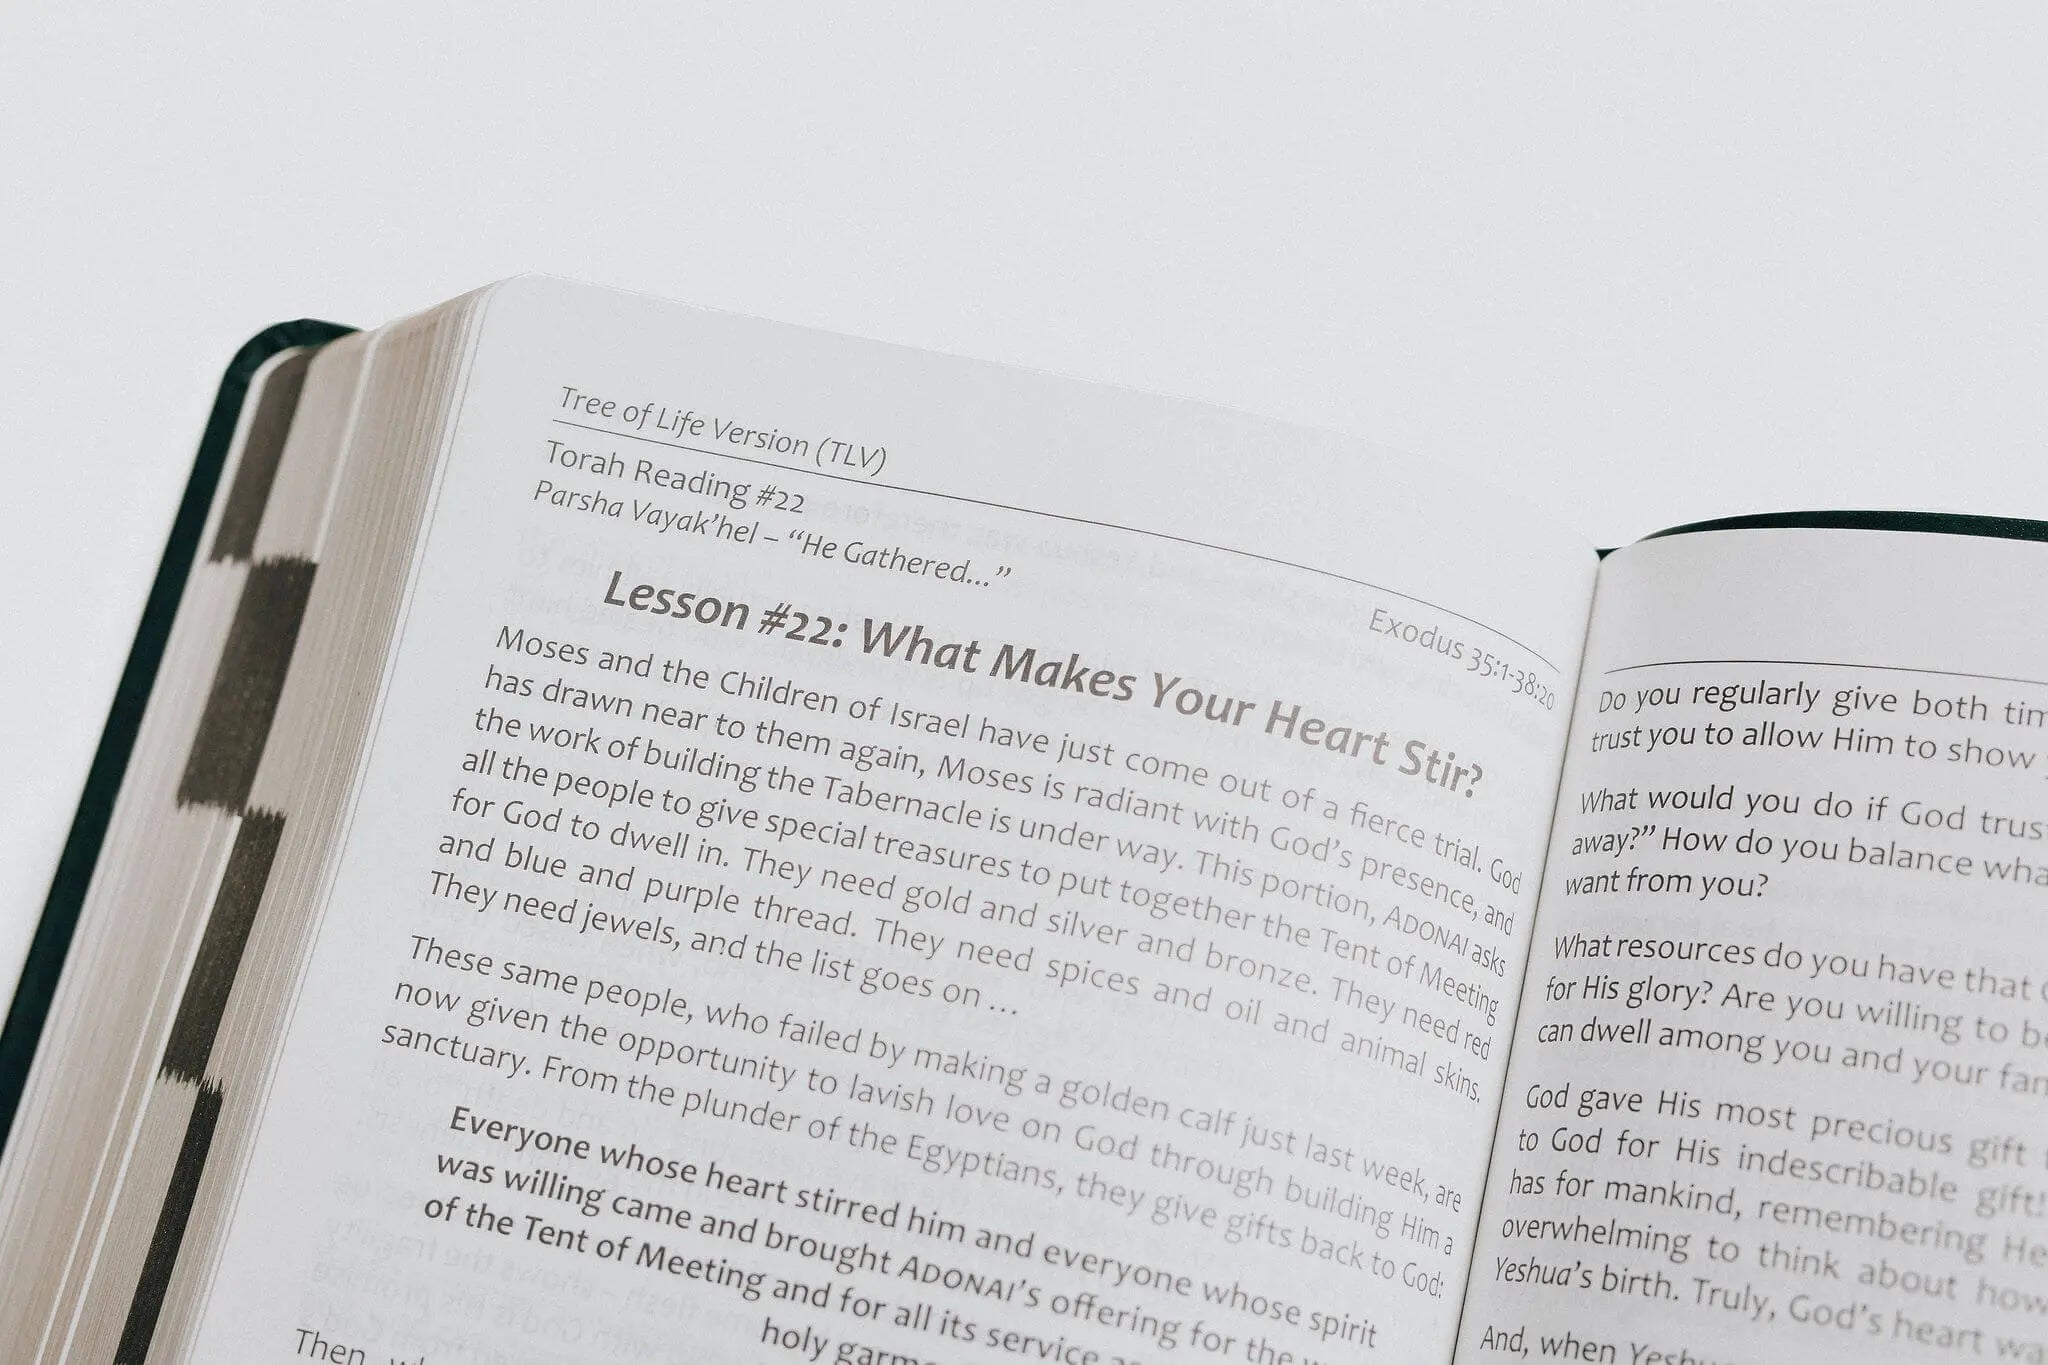 Tree of Life Version (TLV)
Torah Reading #22
Parsha Vayak’hel – “He Gathered...”
Exodus 35:1-38:20
Lesson #22: What Makes Your Heart Stir?
Moses and the Children of Israel have just come out of a fierce trial. God
has drawn near to them again, Moses is radiant with God’s presence, and
the work of building the Tabernacle is under way. This portion, ADONAI asks
all the people to give special treasures to put together the Tent of Meeting
for God to dwell in. They need gold and silver and bronze. They need red
and blue and purple thread. They need spices and oil and animal skins.
They need jewels, and the list goes on ...
These same people, who failed by making a golden calf just last week, are
now given the opportunity to lavish love on God through building Him a
sanctuary. From the plunder of the Egyptians, they give gifts back to God:
Everyone whose heart stirred him and everyone whose spirit
was willing came and brought ADONAI’s offering for the
of the Tent of Meeting and for all its service
holy
Then
Do you regularly give both
trust you to allow Him to show
What would you do if God
away?” How do you balance
want from you?
What resources do you have that
for His glory? Are you willing to
can dwell among you and your
God gave His most precious gift
to God for His indescribable gift!
has for mankind, remembering
overwhelming to think about
Yeshua’s birth. Truly, God’s heart
And, when